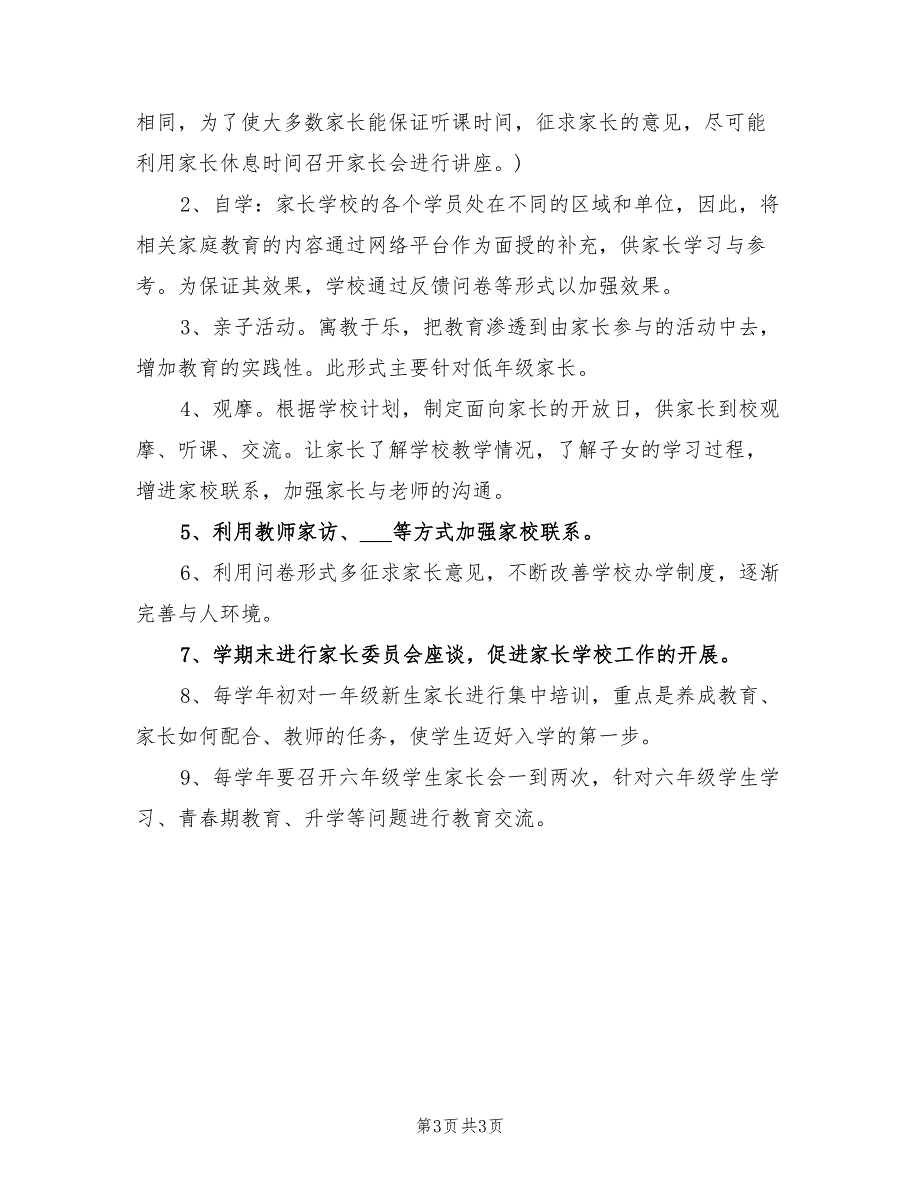 相同，为了使大多数家长能保证听课时间，征求家长的意见，尽可能
利用家长休息时间召开家长会进行讲座。)
2、自学：家长学校的各个学员处在不同的区域和单位，因此，将
相关家庭教育的内容通过网络平台作为面授的补充，供家长学习与参
考。为保证其效果，学校通过反馈问卷等形式以加强效果。
3、亲子活动。寓教于乐，把教育渗透到由家长参与的活动中去，
增加教育的实践性。此形式主要针对低年级家长。
4、观摩。根据学校计划，制定面向家长的开放日，供家长到校观
摩、听课、交流。让家长了解学校教学情况，了解子女的学习过程，
增进家校联系，加强家长与老师的沟通。
5、利用教师家访、___等方式加强家校联系。
6、利用问卷形式多征求家长意见，不断改善学校办学制度，逐渐
完善与人环境。
7、学期末进行家长委员会座谈，促进家长学校工作的开展。
8、每学年初对一年级新生家长进行集中培训，重点是养成教育、
家长如何配合、教师的任务，使学生迈好入学的第一步。
9、每学年要召开六年级学生家长会一到两次，针对六年级学生学
习、青春期教育、升学等问题进行教育交流。
第3页共3页